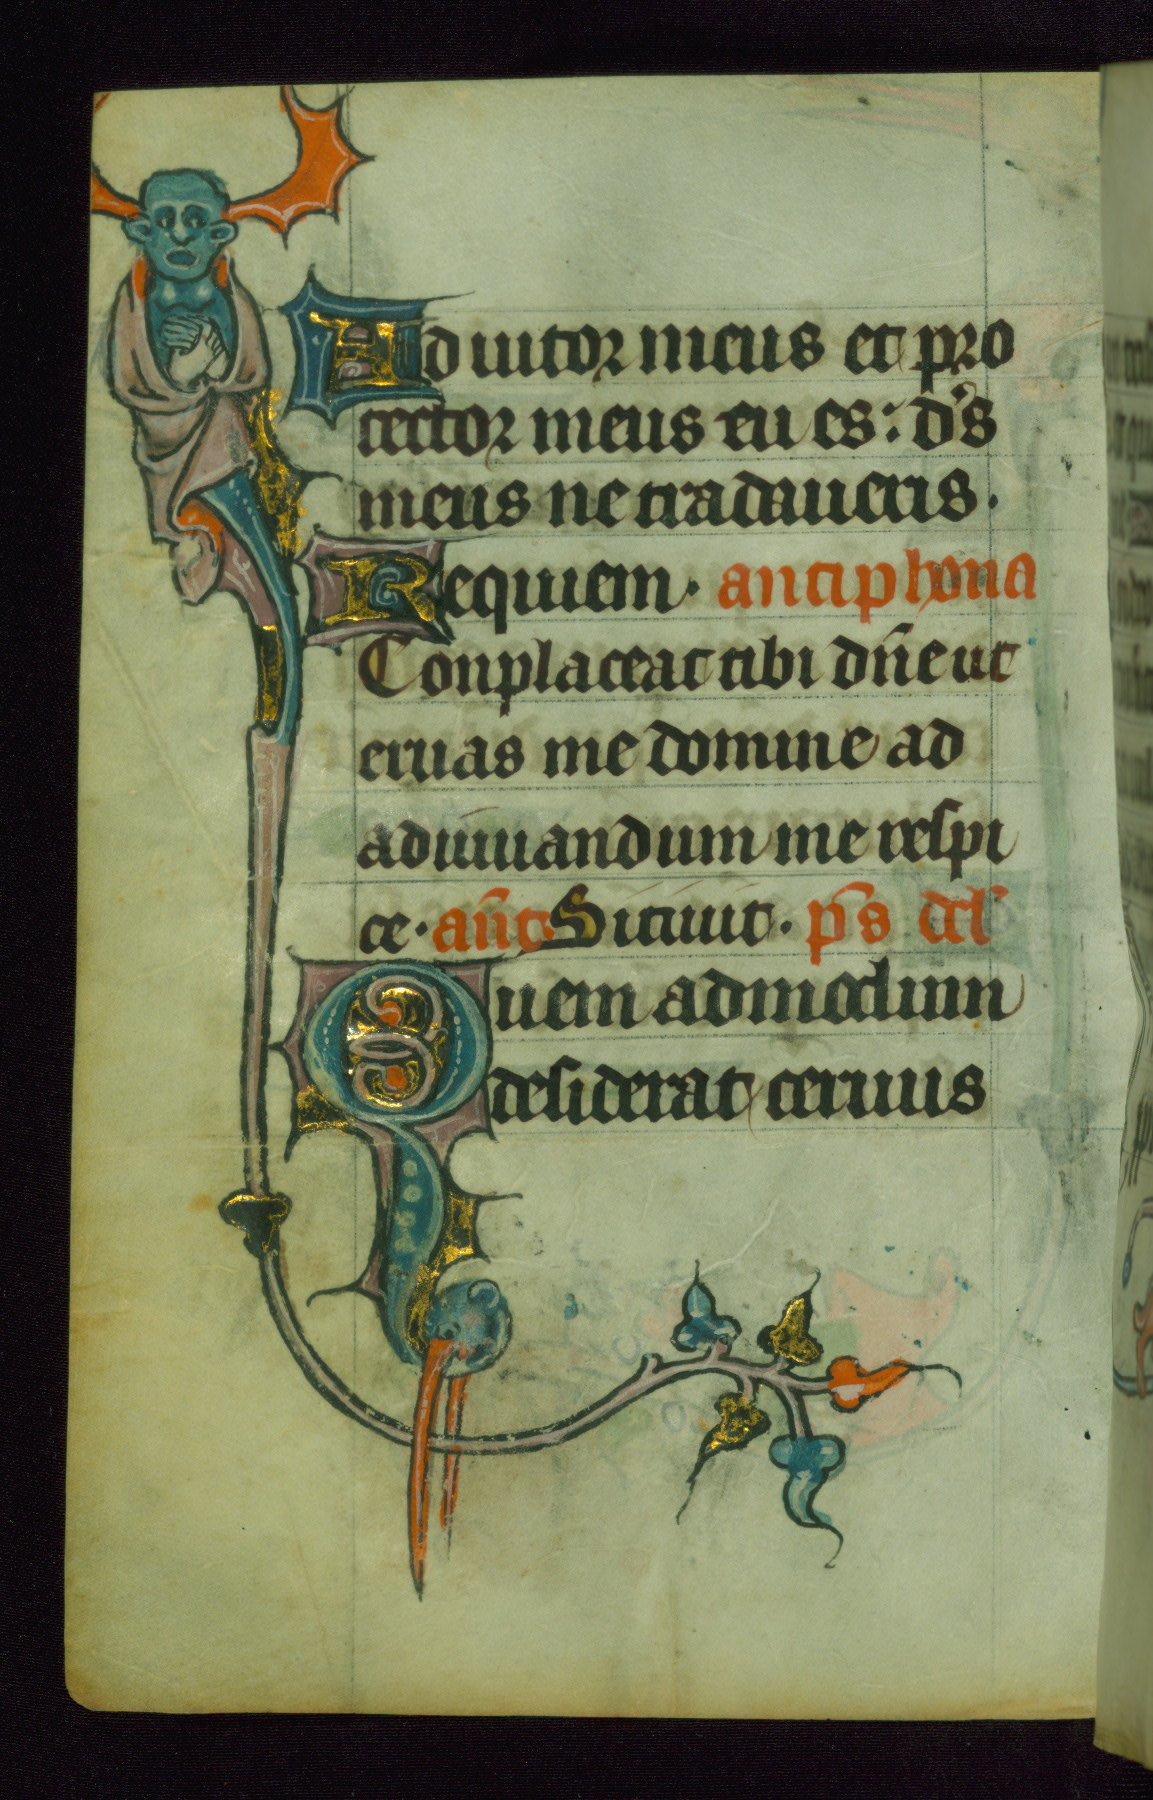 Ad iutor meus et pro
tector meus tu es: d̄s
meus ne tradaueris.
Requiem. antiphona
Conplaceat tibi dn̄e ut
eruas me domine ad
adiuuandum me respi
ce. an̄t Sitiuit. p̄s dd̄
Quem admodum
desiderat ceruus